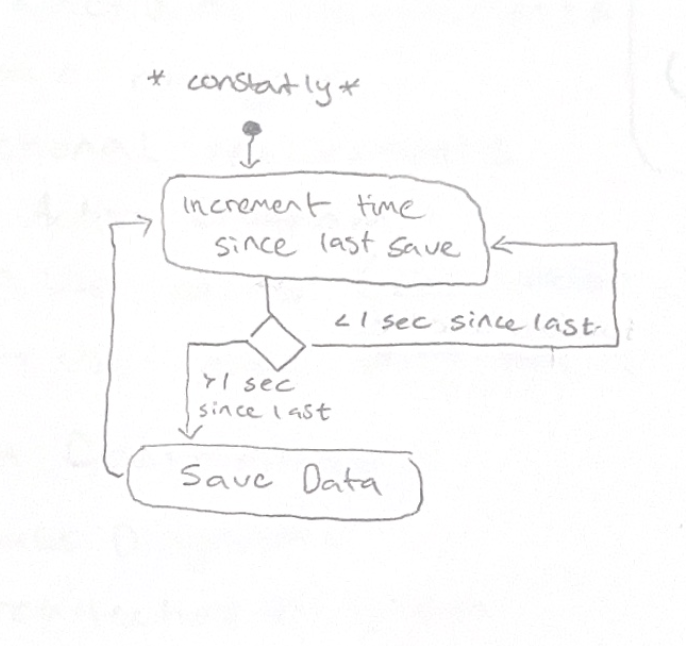 * constantly *
increment time
since last save
<1 sec since last
>1 sec
since last
Save Data